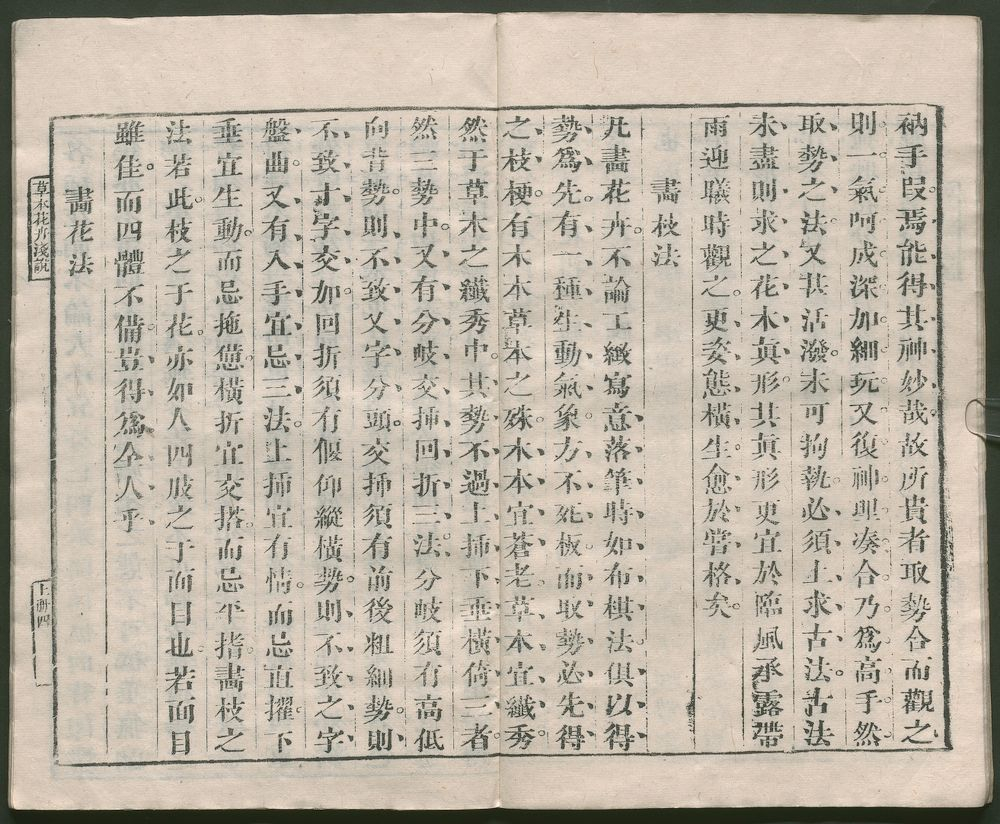 衲手叚焉能得其神妙哉故所貴者取勢合而觀之
則一氣呵成深加細玩又復神理凑合乃爲高手然
取勢之法又甚活潑未可拘執必須上求古法古法
未盡則求之花木眞形其眞形更宜於臨風承露帶
雨迎曦時觀之更姿態橫生愈於嘗格矣
畫枝法
凢畫花卉不論工緻寫意落筆時如布棋法俱以得
勢爲先有一種生動氣象方不死板而取勢必先得
之枝梗有木本草本之殊木本宜蒼老草本宜纖秀
然于草木之纖秀中其勢不過上揷下垂橫倚三者
然三勢中又有分岐交揷回折三法分岐須有高低
向背勢則不致又字分頭交揷須有前後粗細勢則
不致十字交加回折須有偃仰縱橫勢則不致之字
盤曲又有入手宜忌三法上揷宜有情而忌直擢下
垂宜生動而忌拖憊橫折宜交搭而忌平指畫枝之
法若此枝之于花亦如人四肢之于面目也若面目
雖佳而四體不備豈得爲全人乎
畫花法
草木花卉淺說
上冊四